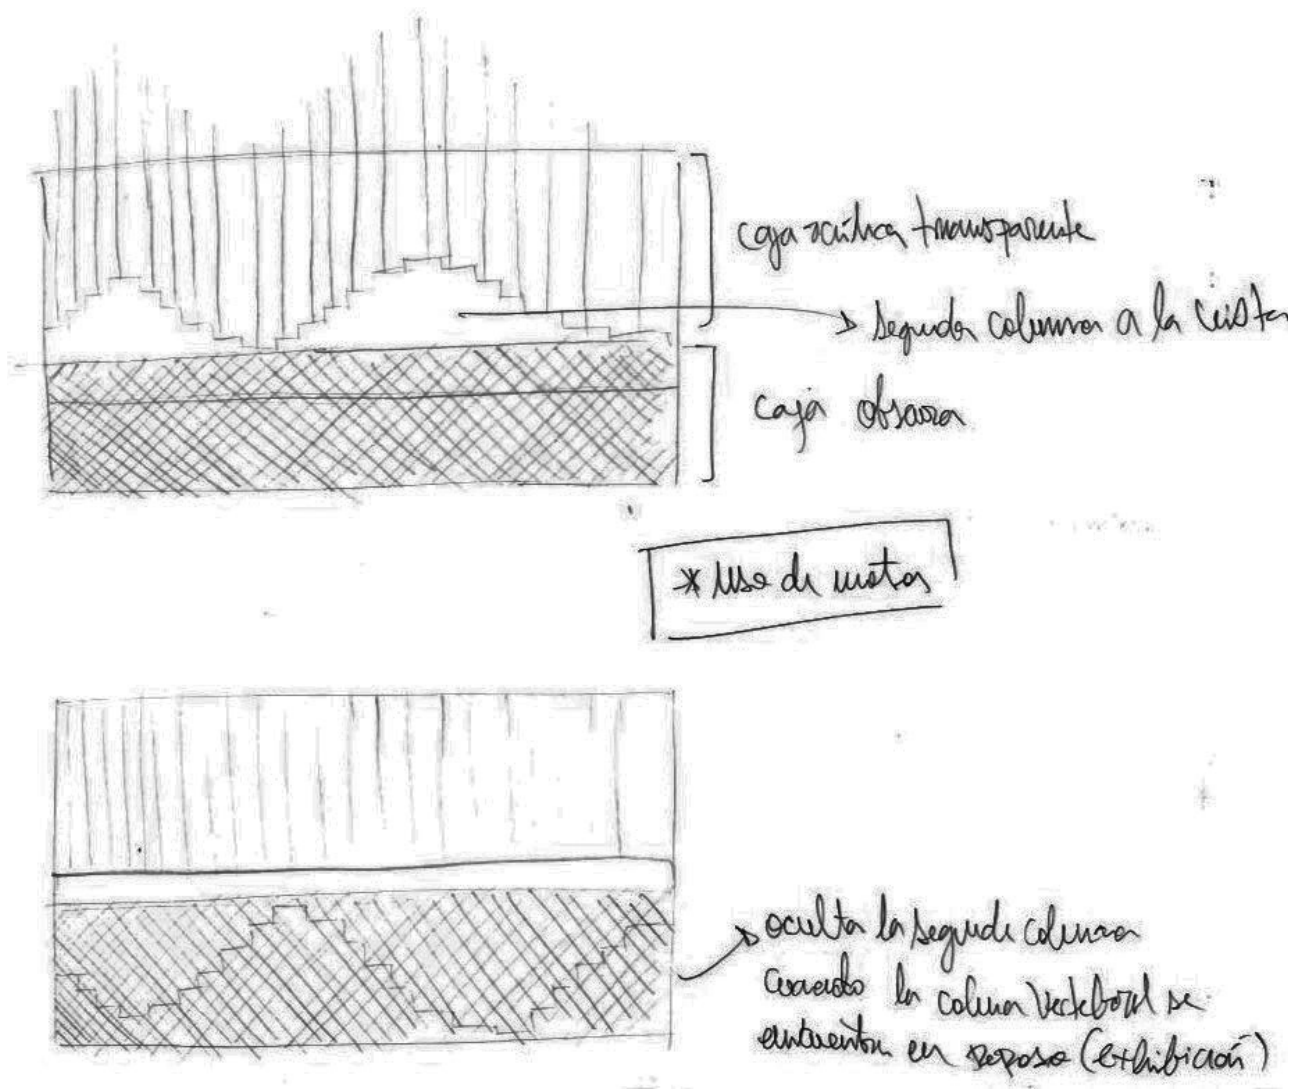 caja acrílica transparente
segunda columna a la vista
caja obscura
* Uso de motor
oculta la segunda columna
cuando la columna vertebral se
encuentra en reposo (exhibición)